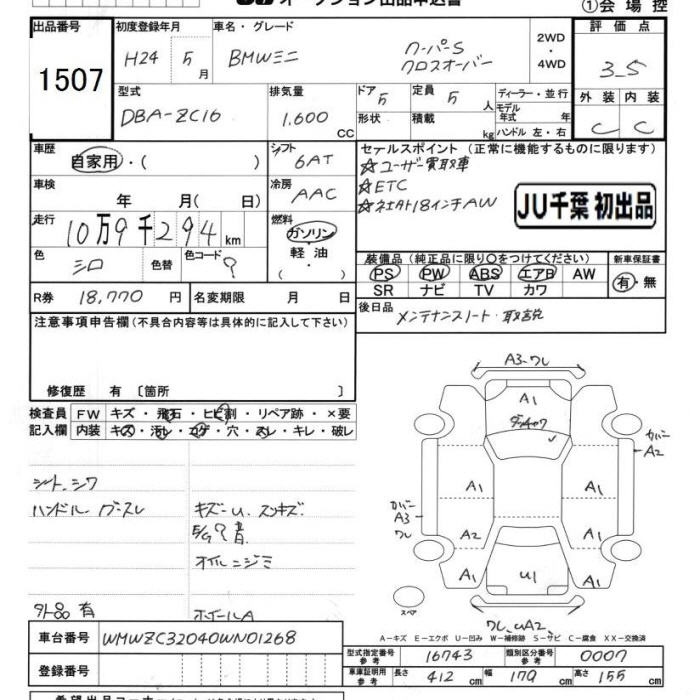 オークション出品申込書
①会場控
出品番号
1507
初度登録年月
H24 5月
車名・グレード
BMWミニ
クーパーS
クロスオーバー
2WD
・
4WD
評価点
3_5
外装 内装
C C
型式
DBA-ZC16
排気量
1.600 CC
ドア 5
形状
定員 5 人
積載 kg
ディーラー・並行
モデル年式 年
ハンドル 左・右
車歴
自家用・( )
シフト
6AT
車検
年 月( 日)
冷房
AAC
走行
10万9千294km
燃料
ガソリン
・
軽油
・
( )
色
シロ
色替
色コード
R券 18,770円
名変期限 月 日
セールスポイント (正常に機能するものに限ります)
☆ユーザー買取車
☆ETC
☆社外18インチAW
JU千葉 初出品
装備品(純正品に限り○をつけてください)
PS PW ABS エアB AW
SR ナビ TV カワ
新車保証書
有・無
後日品
メンテナンスノート・取説
注意事項申告欄(不具合内容等は具体的に記入して下さい)
修復歴 有 〔箇所 〕
検査員記入欄
FW キズ・飛石・ヒビ割・リペア跡・×要
内装 キズ・汚レ・コゲ・穴・スレ・キレ・破レ
シート、シワ
ハンドル
キズ-U、スリキズ
オイルニジミ
外品有
ホイールA
A3、ワレ
カバー
A2
A1
A1
A1
A1
カバー
A3
ワレ
A2
A1
A1
U1
A1
スペア
ワレ、UA2
A-キズ E-エクボ U-凹み W-補修跡 S-サビ C-腐食 XX-交換済
車台番号 WMWZC32040WN01268
登録番号
型式指定番号 参考 16743
類別区分番号 参考 0007
車庫証明用 参考
長さ 412cm
幅 179cm
高さ 155cm